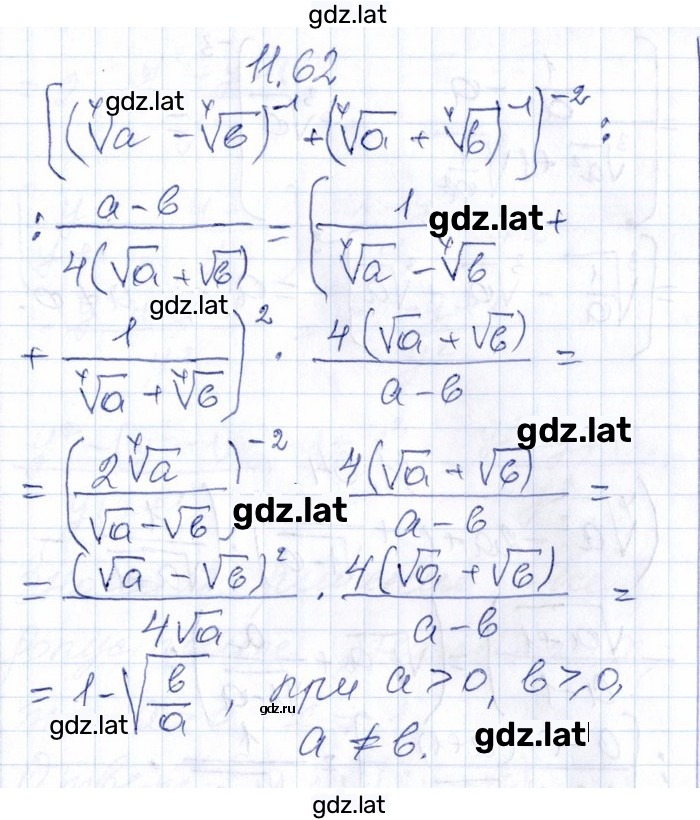 gdz.lat
11.62
gdz.lat
[(∜a - ∜b)^-1 + (∜a + ∜b)^-1]^-2 :
: (a-b)/(4(√a + √b)) = (1/(∜a - ∜b) +
gdz.lat
gdz.lat
+ 1/(∜a + ∜b))^2 · (4(√a + √b))/(a-b) =
gdz.lat
= ((2∜a)/(√a - √b))^-2 (4(√a + √b))/(a-b) =
gdz.lat
= ((√a - √b)^2)/(4√a) · (4(√a + √b))/(a-b) =
= 1 - √(b/a), при a > 0, b ⩾ 0,
gdz.lat
gdz.ru
a ≠ b.
gdz.lat
gdz.lat